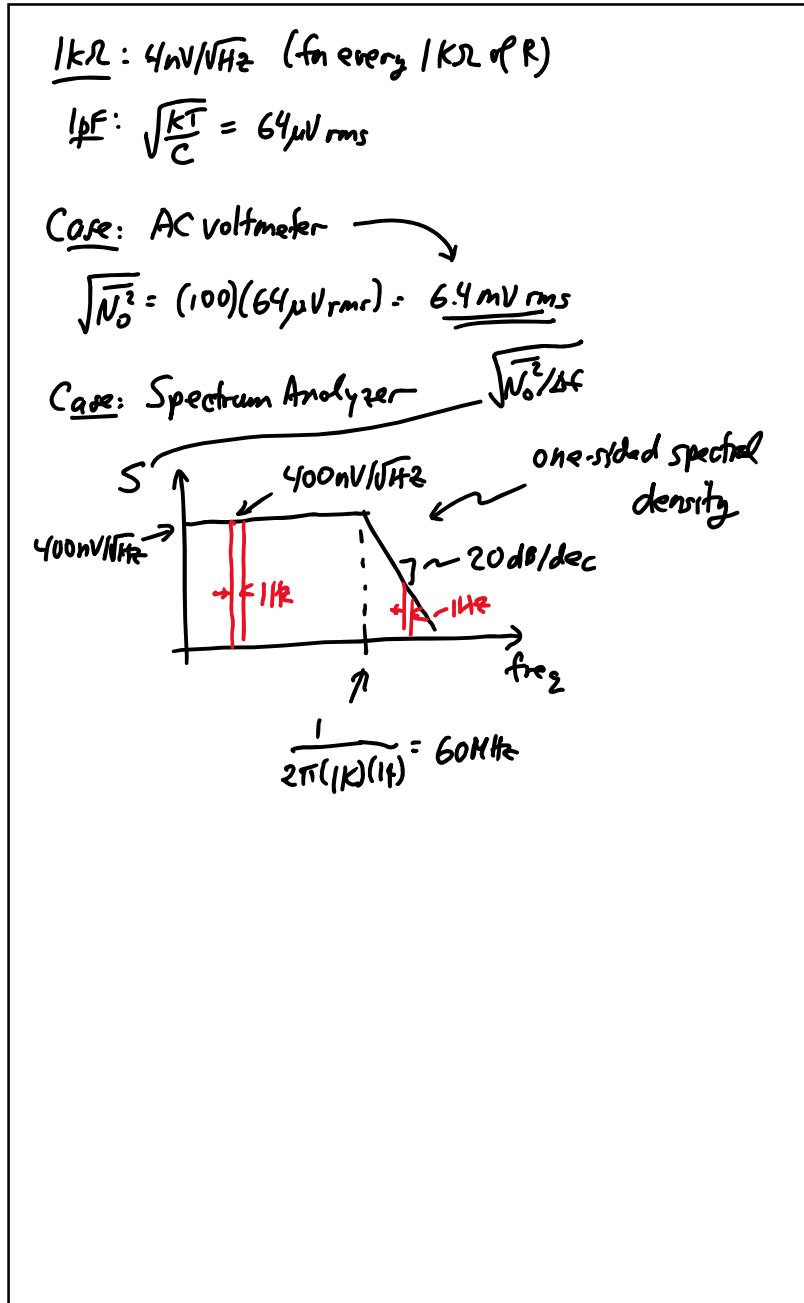 1kΩ: 4nV/√Hz (for every 1kΩ of R)
1pF: √(kT/C) = 64μV rms
Case: AC voltmeter
√(N₀²) = (100)(64μV rms) = 6.4 mV rms
Case: Spectrum Analyzer √(N₀²/Δf)
S
400nV/√Hz
one-sided spectral
density
400nV/√Hz
20dB/dec
1Hz
1Hz
freq
1/(2π(1K)(1f)) = 60MHz